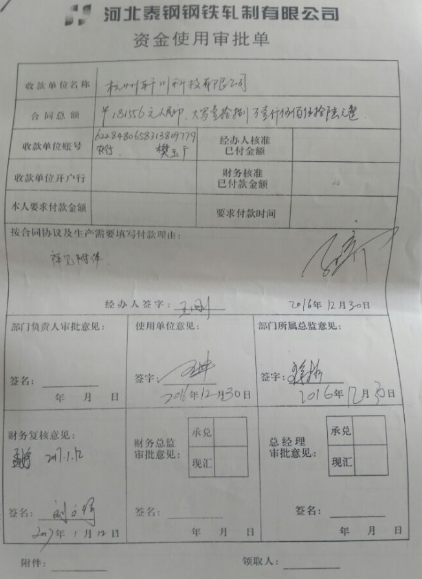 河北泰钢钢铁轧制有限公司
资金使用审批单
收款单位名称 杭州轩川科技有限公司
合同总额 ￥181556元人民币
收款单位账号 农行 经办人核准已付金额
收款单位开户行 财务核准已付款金额
本人要求付款金额 要求付款时间
按合同协议及生产需要填写付款理由:
经办人签字: 2016年12月30日
部门负责人审批意见: 使用单位意见: 部门所属总监意见:
签名: 签字: 签字:
年 月 日 2016年12月30日 2016年12月30日
财务复核意见: 财务总监审批意见: 承兑 现汇 总经理审批意见: 承兑 现汇
2017.1.12
签名: 签名: 签名:
2017年1月12日 年 月 日 年 月 日
附件: 领取人: